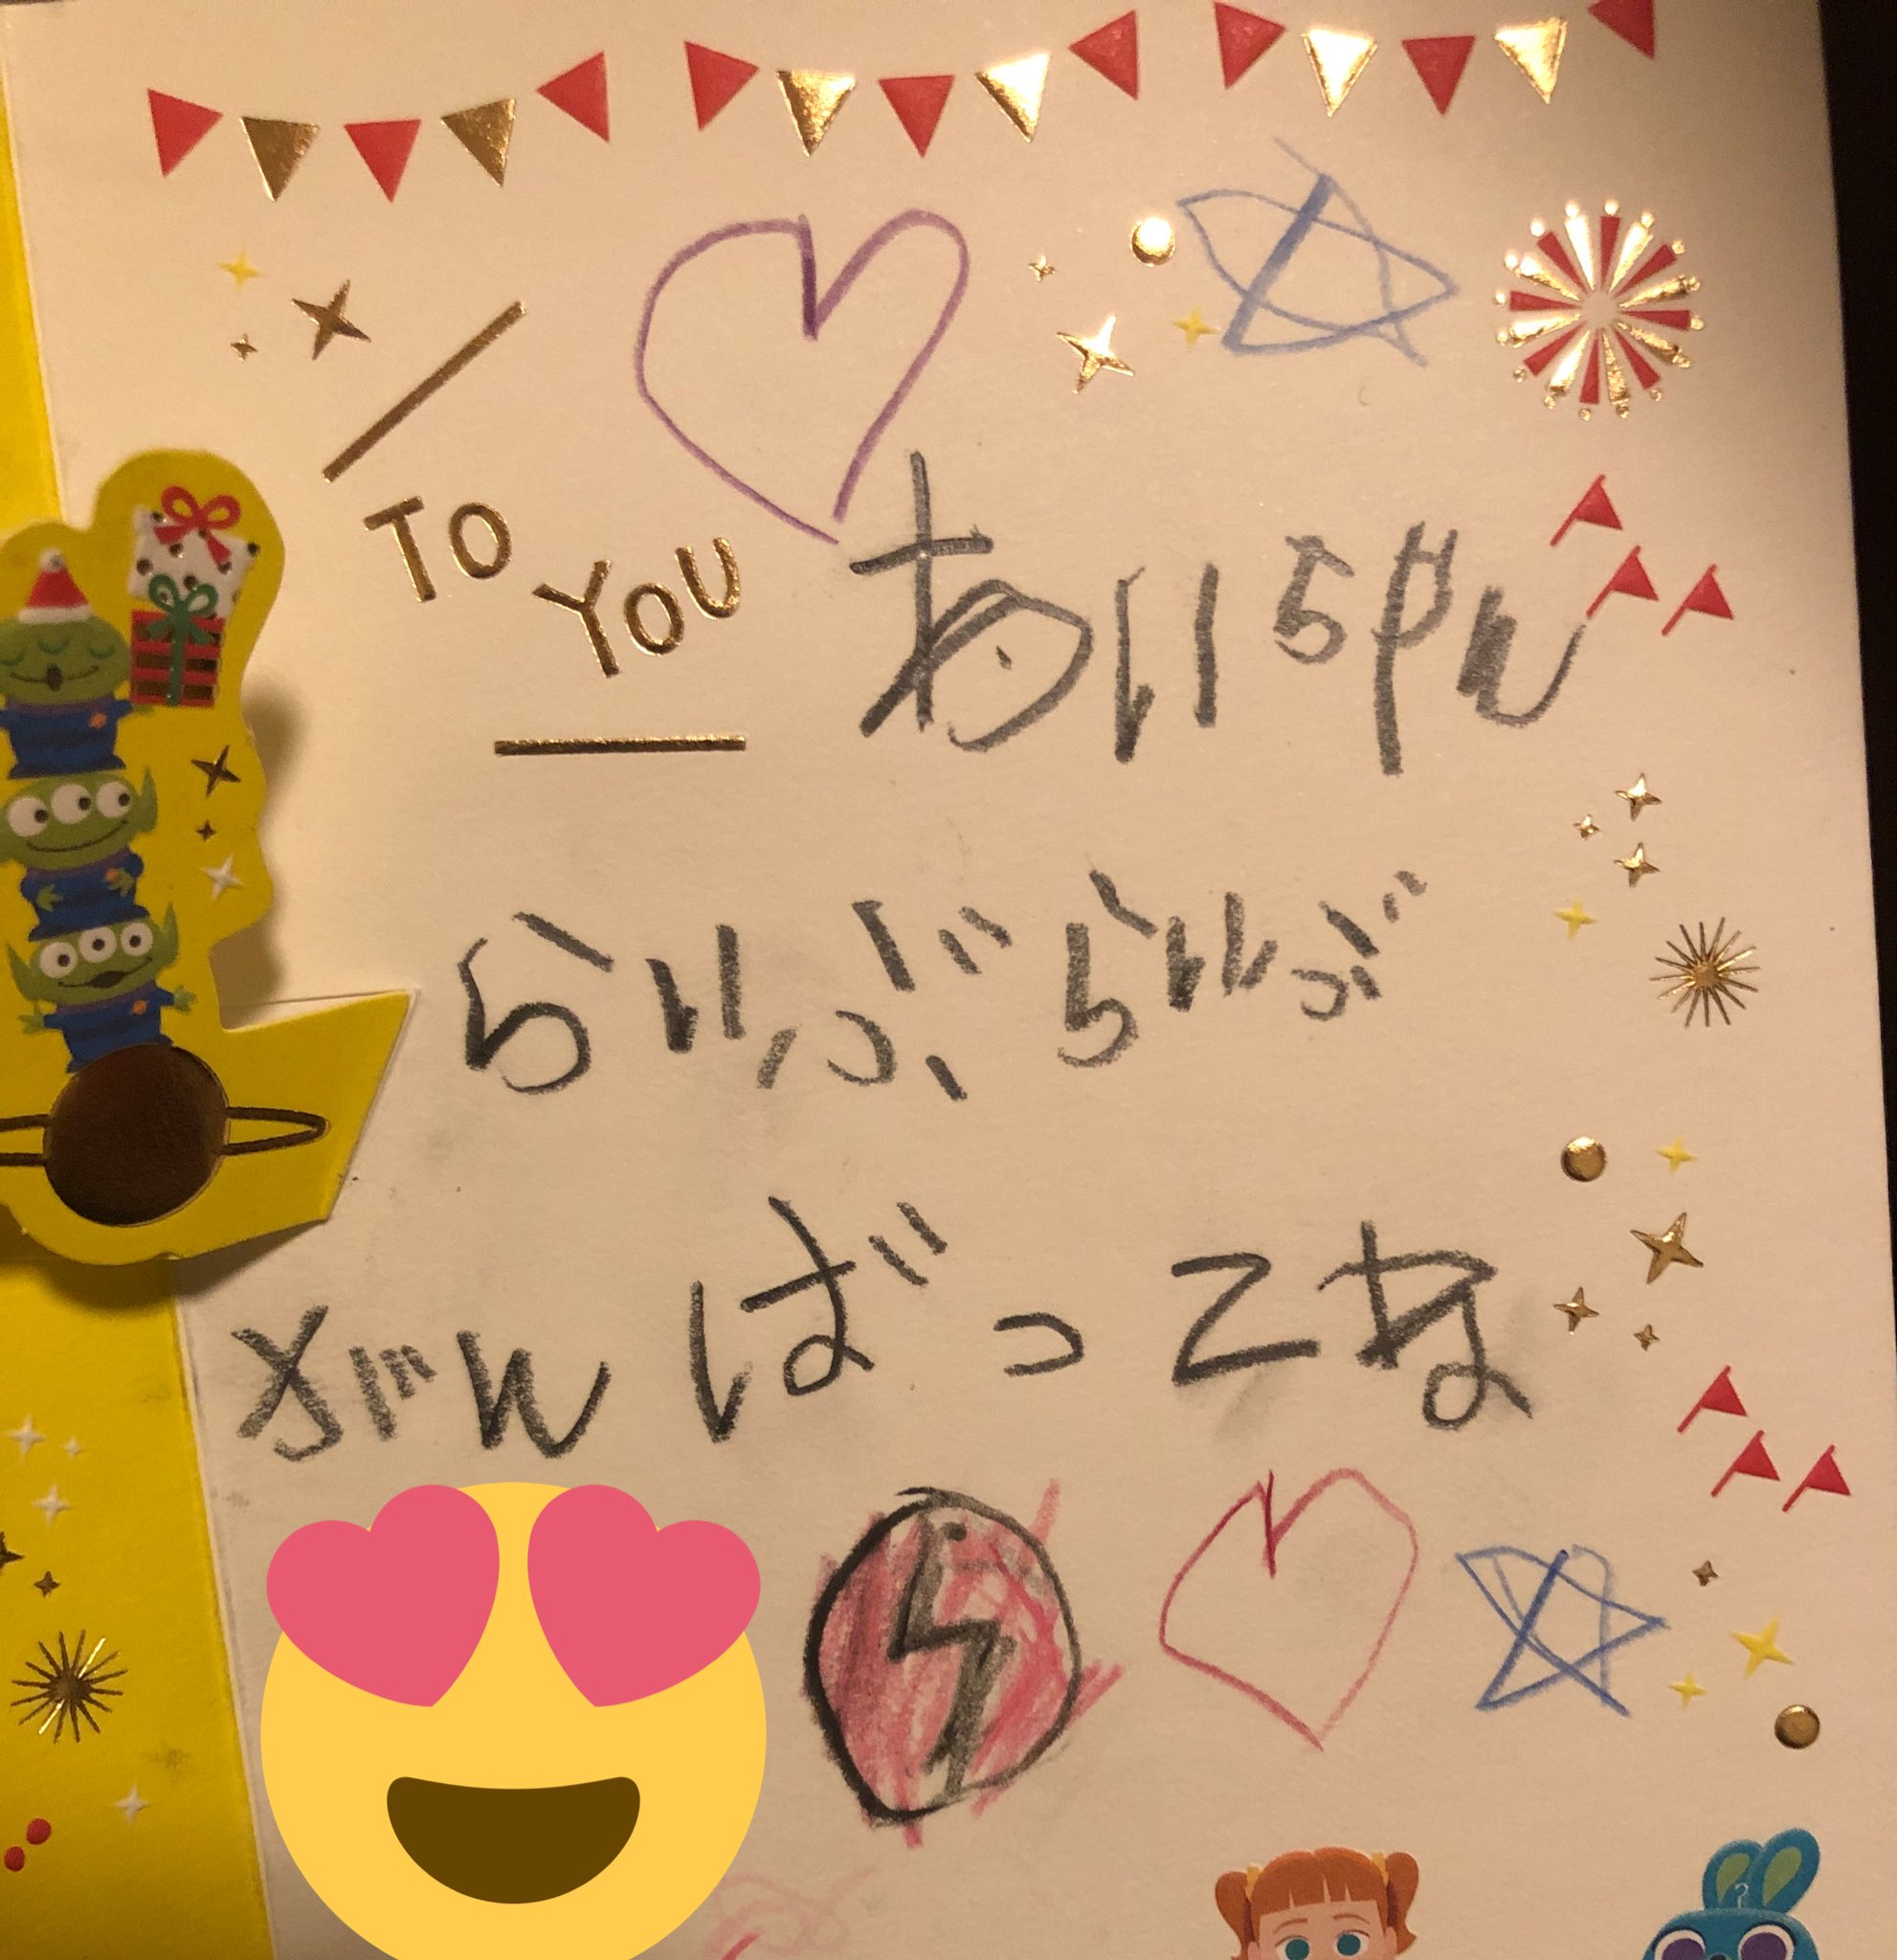 TO
YOU
あいちゃん
らいぶらいぶ
がんばってね